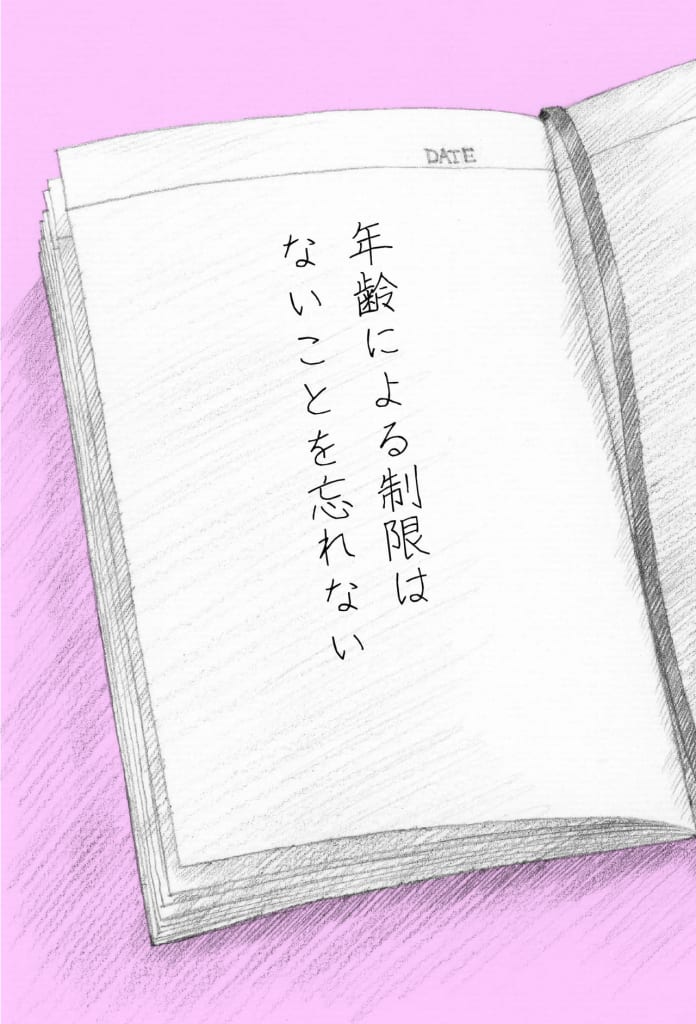 DATE
年齢による制限は
ないことを忘れない